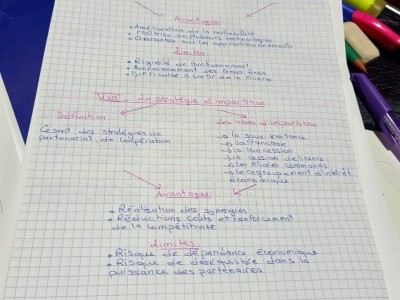 Avantages:
• Amélioration de la rentabilité
• Maîtrise de plusieurs technologies
• Garantie sur les approvisionnements
Limites:
• Rigidité de fonctionnement
• Accroissement des frais fixes
• Difficulté à sortir de la filière
de stratégie d'impartition
Définition
Ce sont des stratégies de
partenariat de coopération
Les types d'impartition
→ la sous-traitance
→ la franchise
→ la concession
→ la cession de licence
→ les pilotes commandé
→ le regroupement d'intérêt
économique
Avantages:
• Réalisation des synergies
• Réductions coûts et renforcement
de la compétitivité
Limites:
• Risque de dépendance économique
• Risque de déséquilibre dans la
puissance des partenaires